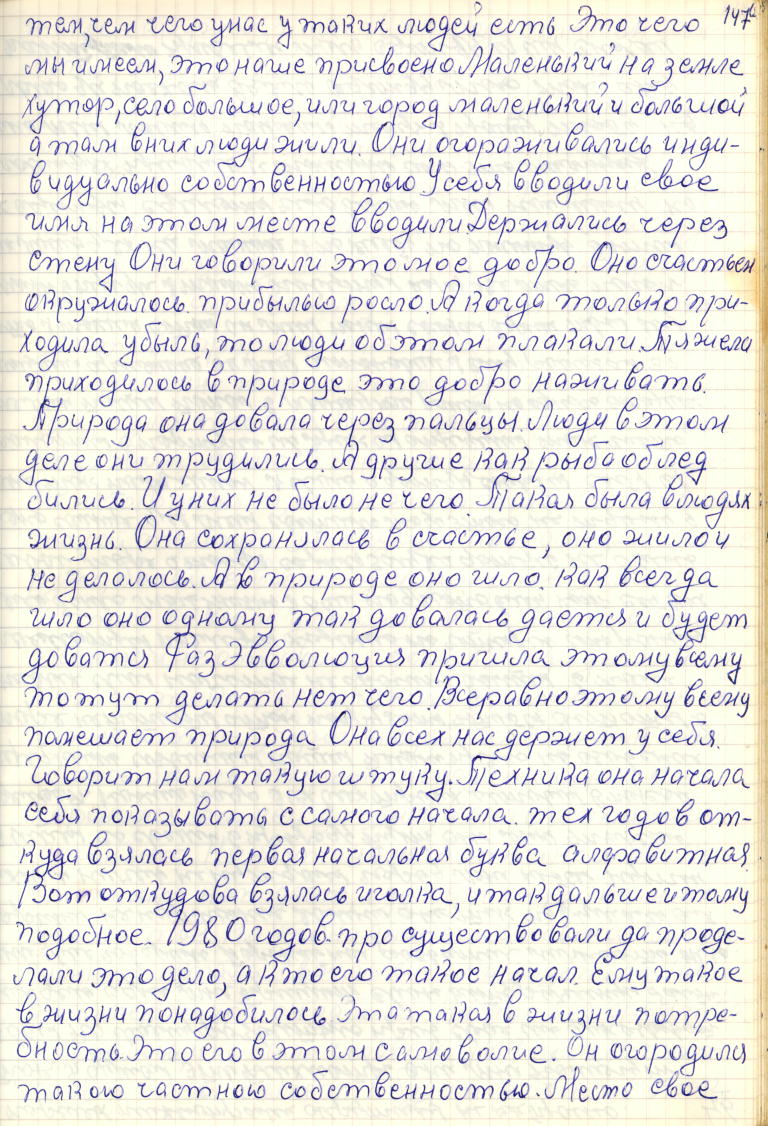 147
тем, чем чего у нас у таких людей есть Это чего
мы имеем, это наше присвоено Маленький на земле
хутор, село большое, или город маленький и большой
а там в них люди жили. Они огораживались инди-
видуально собственностью У себя вводили свое
имя на этом месте вводили. Держались через
стену Они говорили это мое добро. Оно счастьем
окружалось. прибылью росло. А когда только при-
ходила убыль, то люди об этом плакали. Тяжела
приходилось в природе это добро наживать.
Природа она довала через пальцы. Люди в этом
деле они трудились. А другие как рыба об лед
бились. И у них не было не чего. Такая была в людях
жизнь. Она сохранялась в счастье, оно жило и
не делалось. А в природе оно шло. как всегда
шло оно одному так довалась дается и будет
доватся Раз Эвволюция пришла этому всему
то тут делать нет чего. Всеравно этому всему
памешает природа Она всех нас держет у себя.
Говорит нам такую штуку. Техника она начала
себя показывать с самого начала. тех годов от-
куда взялась первая начальная буква алфавитная
Вот откудова взялась иголка, и так дальше итому
подобное. 1980 годов. просуществовали да проде-
лали это дело, а кто его такое начал. Ему такое
в жизни понадобилось Эта такая в жизни потре-
бность. Это его в этом самоволие. Он огородился
такою частною собственностью. Место свое